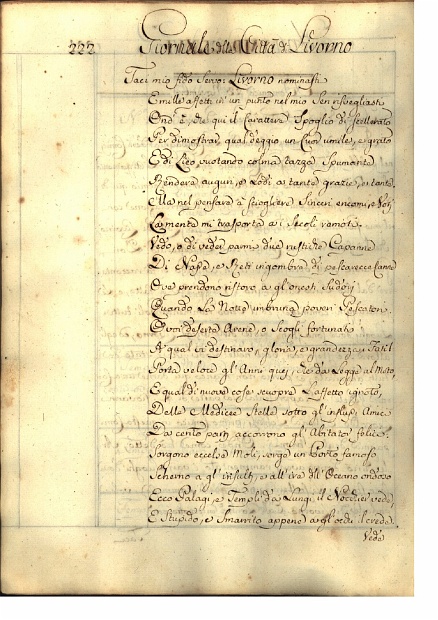 222 Giornale della Città di Livorno
Taci mio fido servo: Livorno nominasti
E mille affetti in un punto nel mio sen risvegliasti
Ond'è, che qui il carattere spoglio di scellerato
Per dimostrar, qual deggio un cuor umile, e grato
E di Lieo vuotando colma tazza spumante
Renderà auguri, e lodi a tante grazie, e tante.
Ma nel pensare a sciogliere sinceri encomi, e voti
La mente mi trasporta ai secoli remoti
Vedo, o di veder parmi due rustiche Capanne
Di Nasse, e Reti ingombra di pescarecce Canne
Ove prendono ristoro a gl'onesti sudori
Quando la Notte imbruna poveri Pescatori
O voi deserte Arene, o Scogli fortunati
A qual vi destinaro, gloria, e grandezza i Fati!
Porta veloce gl'Anni quei, che dà Legge al Moto,
E qual di nuove cose scuopre l'aspetto ignoto,
Delle Medicee Stelle sotto gl'influssi Amici
Da cento parti accorrono gl'Abitator felici
Sorgono eccelse Moli, sorge un Porto famoso
Scherno a gl'insulti, e all'ire dell'Oceano ondoso
Ecco Palagi, e Templi da lungi il Nocchier vede,
E stupido, e smarrito appena agl'occhi il crede.
Vede